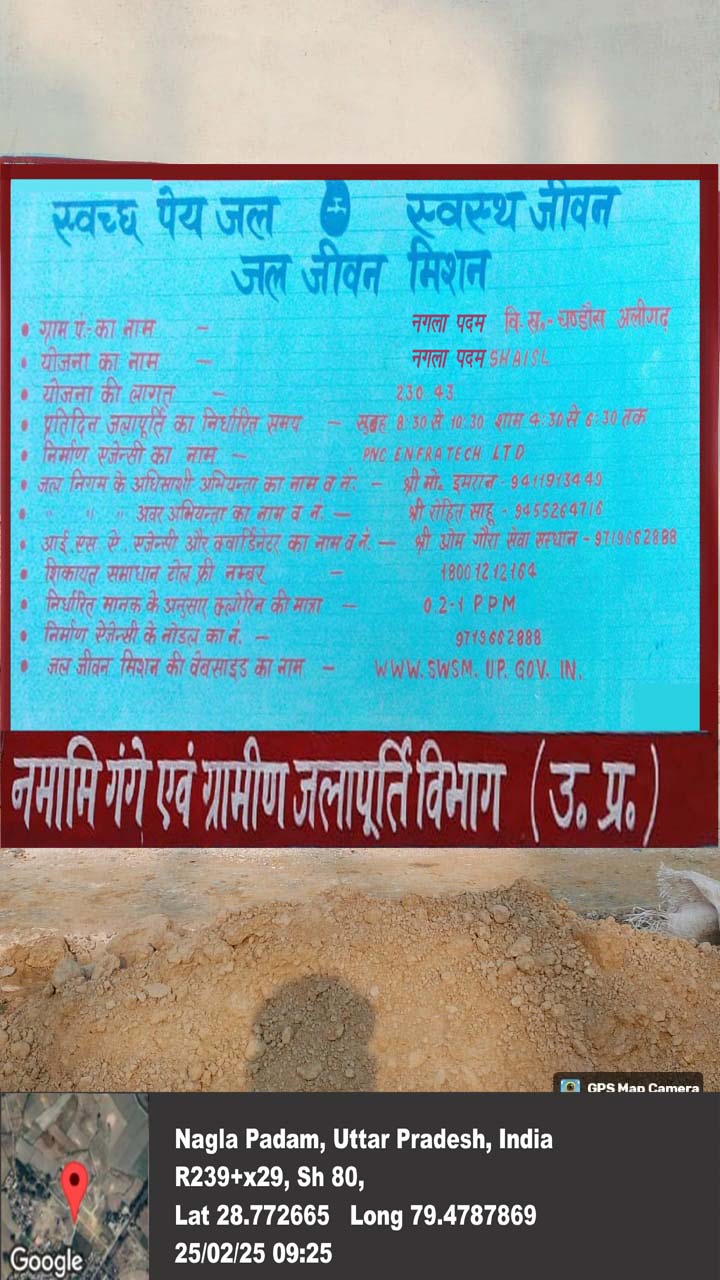 स्वच्छ पेय जल स्वस्थ जीवन
जल जीवन मिशन
• ग्राम पं:- का नाम – नगला पदम वि.ख.- चण्डौस अलीगढ़
• योजना का नाम – नगला पदम SHAISL
• योजना की लागत – 230.43
• प्रतिदिन जलापूर्ति का निर्धारित समय – सुबह 8:30 से 10:30 शाम 4:30 से 6:30 तक
• निर्माण एजेन्सी का नाम – PNC ENFRATECH LTD
• जल निगम के अधिसाशी अभियन्ता का नाम व नं. – श्री मो. इमरान - 9411913449
• " " " अवर अभियन्ता का नाम व नं. – श्री रोहित साहू - 9455264716
• आई. एस. ऐ. एजेन्सी और क्वार्डिनेटर का नाम व नं. – श्री ओम गौरा सेवा संस्थान - 9719662888
• शिकायत समाधान टोल फ्री नम्बर – 18001212164
• निर्धारित मानक के अनुसार क्लोरिन की मात्रा – 0.2-1 PPM
• निर्माण ऐजेन्सी के नोडल का नं. – 9719662888
• जल जीवन मिशन की वेबसाइड का नाम – WWW.SWSM.UP.GOV.IN.
नमामि गंगे एवं ग्रामीण जलापूर्ति विभाग (उ. प्र.)
GPS Map Camera
Nagla Padam, Uttar Pradesh, India
R239+x29, Sh 80,
Lat 28.772665 Long 79.4787869
25/02/25 09:25
Google